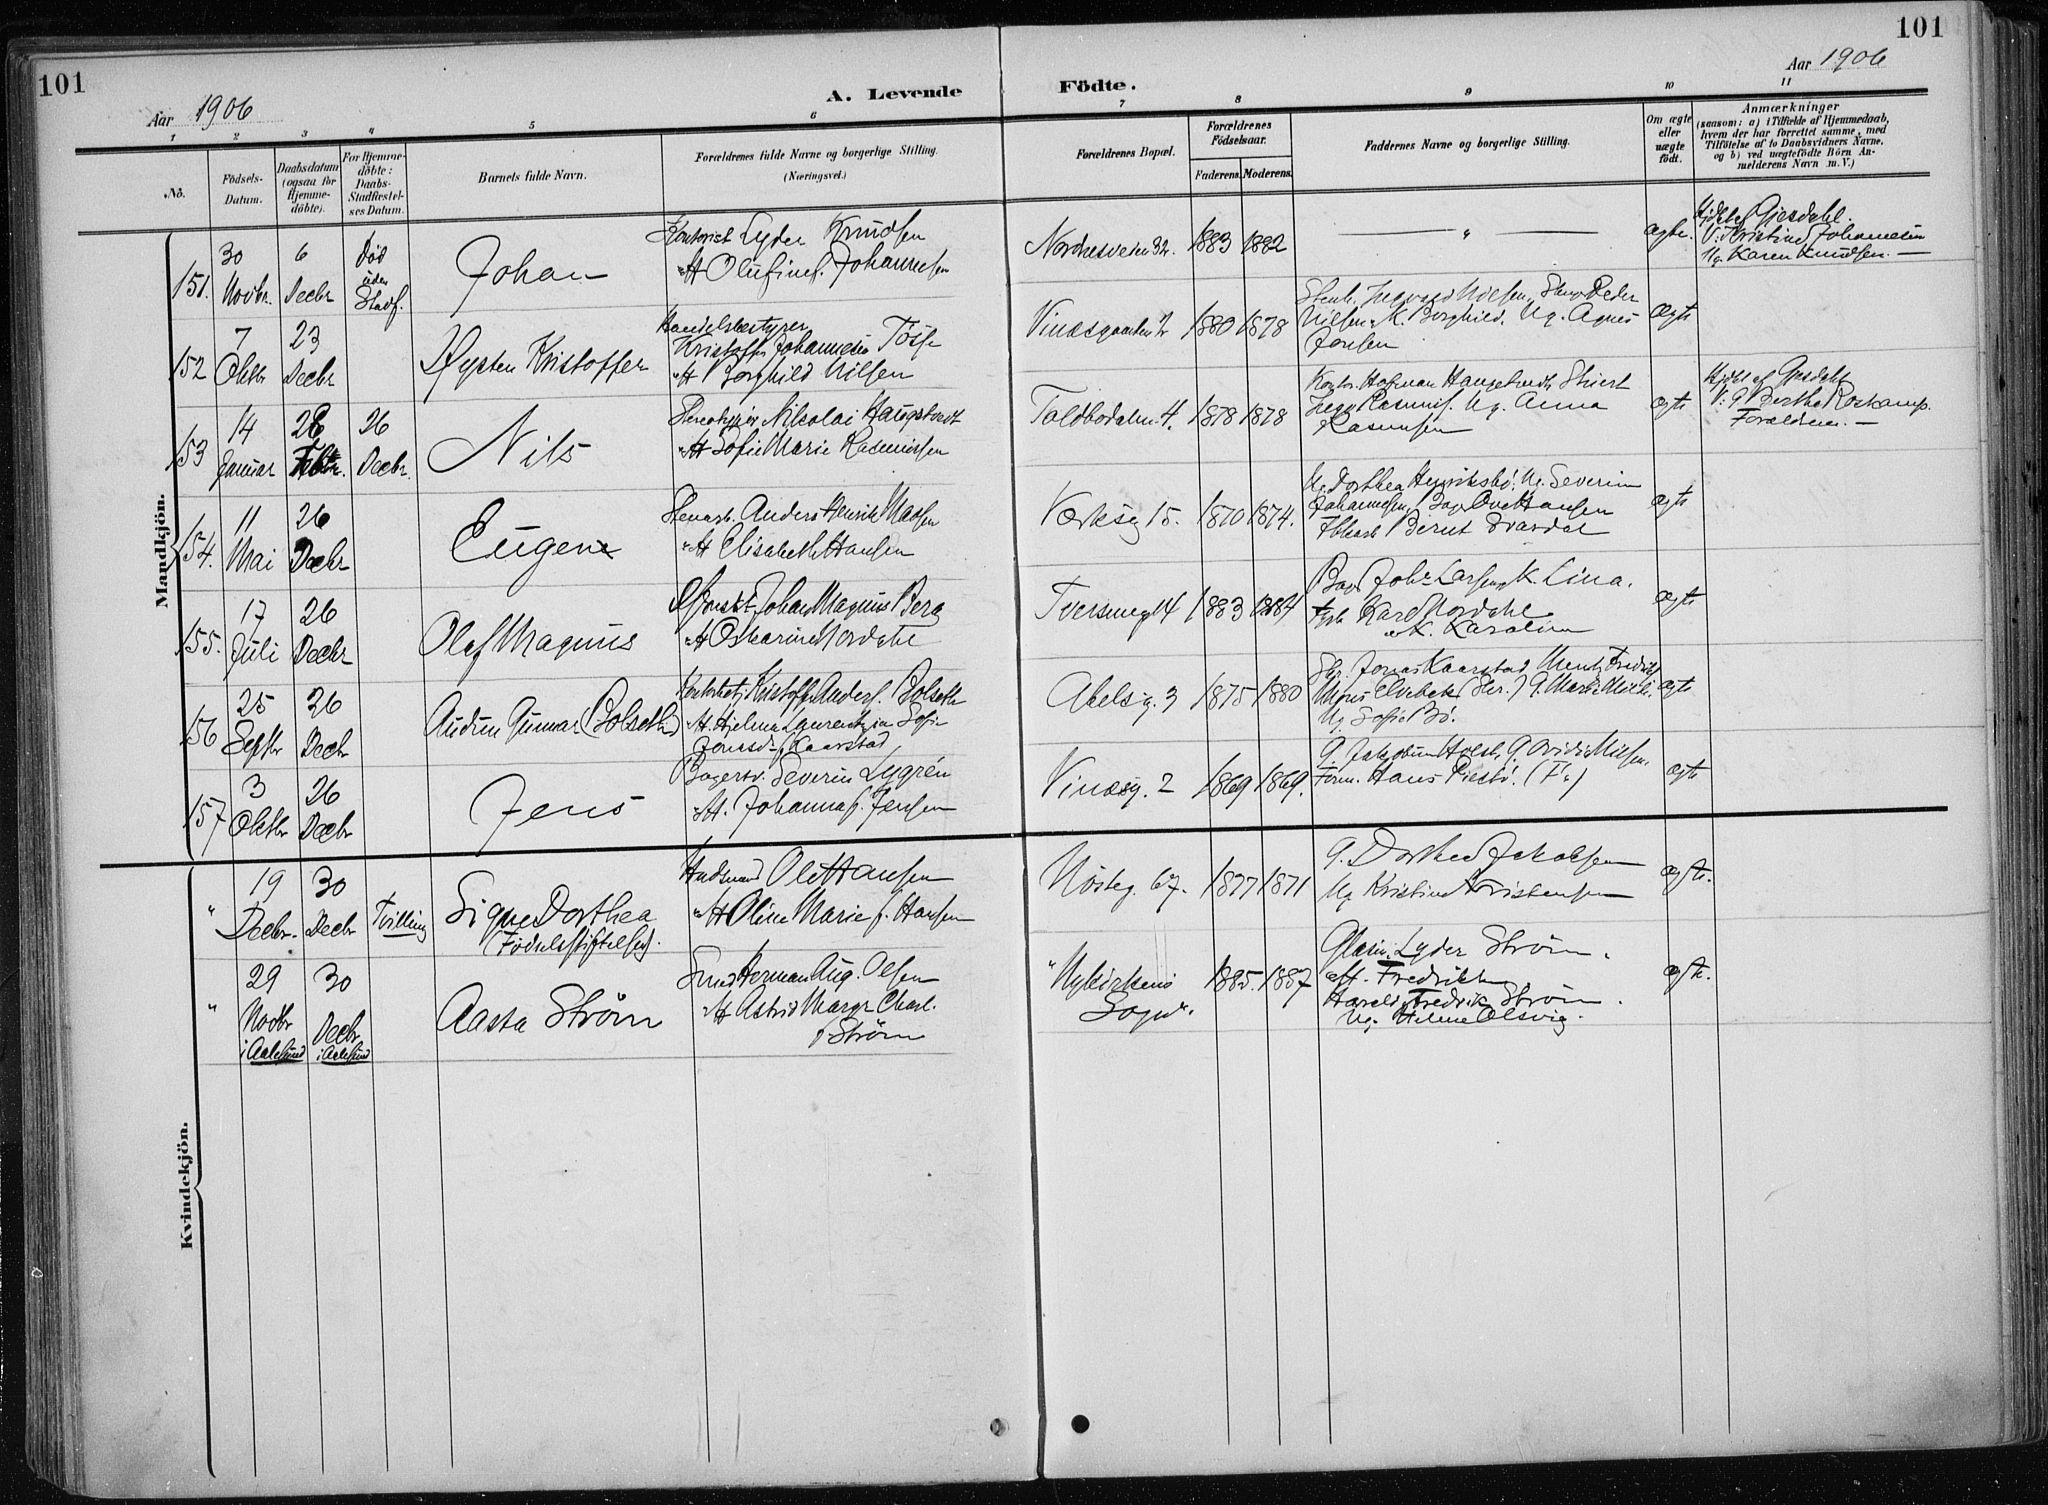 101
101
Aar 1906
A. Levende Födte.
Aar 1906
1 2 3 4 5 6 7 8 9 10 11
No.
Födsels-Datum.
Daabsdatum (ogsaa for Hjemme-döbte).
For Hjemme-döbte: Daabs-Stadfæstel-ses Datum.
Barnets fulde Navn.
Forældrenes fulde Navne og borgerlige Stilling.
(Næringsvei.)
Forældrenes Bopæl.
Forældrenes Födselsaar.
Faderens. Moderens.
Faddernes Navne og borgerlige Stilling.
Om ægte eller uægte födt.
Anmærkninger
(saasom: a) i Tilfælde af Hjemmedaab,
hvem der har forrettet samme, med
Tilföielse af to Daabsvidners Navne,
og b) ved uægtefödte Börn An-
melderens Navn m. V.)
Mandkjön.
151. 30 Novbr. 6 Decbr Död uden Stadf.
Johan
Kontorist Lyder Knudsen
H Olufine f. Johannesen
Nordnesveien 32. 1883 1882
— " —
ægte.
Hjdbt af Gjesdahl.
V: Kristine Johannesen
Ug. Karen Knudsen. —
152 7 Oktbr 23 Decbr
Øysten Kristoffer
Handelsbestyrer
Kristoffer Johannesen Tösse
H Borghild Nilsen
Vinæsgaarden 1880 1878
Ingvard Nilsen, Peder
Nilsen, K. Borghild, Ug. Agnes
Jonsen
Ægte
153 14 Januar 28 Febr. 26 Decbr.
Nils
Stereotypör Nikolai Haugstvedt
H Sofie Marie Rasmussen
Toldbodalm. 4. 1878 1878
Kontr. Hofman Haugstvedt
Ug. Anna
Rasmussen
ægte
Hjdbt af Gjesdahl
V: G Berthe Roskamp.
Forældrene. —
154. 11 Mai 26 Decbr
Eugen
Stenarb. Anders Henrik Madsen
H Elisabeth Hansen
Verksg 15. 1870 1874.
Ug. Dorthea Henriksbö, Ug. Severine
Johannesen, Bag. Ove Hansen
Bernt Svardal
ægte
155. 17 Juli 26 Decbr
Olaf Magnus
Johan Magnus Berg
H Oskarine Nordahl
Tversmug 14 1883 1884
Bag. Joh. Larsen, K. Lina.
Karl Nordahl
K. Karoline
ægte
156 25 Septbr 26 Decbr
Audun Gunnar (Bolseth)
Kontorbetj. Kristoffer Anders. Bolseth
H. Hjelma Laurentzia Sofie
Jonsd. Kaarstad
Abelsg. 3 1875 1880
Jonas Kaarstad,
G. Marie
Ug Sofie Bö.
ægte
157 3 Oktbr 26 Decbr
Jens
Bagersv. Severin Lygrén
H. Johanna f. Jensen
Vinæsg. 2 1869 1869.
G. Jakobine Holst, G. Nilsen.
Form. Hans (F.)
ægte
Kvindekjön.
" 19 Decbr. 30 Decbr Tvilling
Signe Dorthea
(Födselsstiftelsen).
Ole Hansen
H Oline Marie f. Hansen
Nösteg. 67. 1877 1871
G. Dorthea Jakobsen
Ug Kristine Kristensen
ægte.
" 29 Novbr i Aalesund 30 Decbr i Aalesund
Aasta Ström
Smed Herman Aug. Olsen
H Astrid Margr. Charl.
f Ström
"Nykirkens
Sogn". 1885. 1887
Glasm. Lyder Ström.
Fredrikke
Harald Fredrik Ström.
Ug. Helene Olsvig.
ægte.